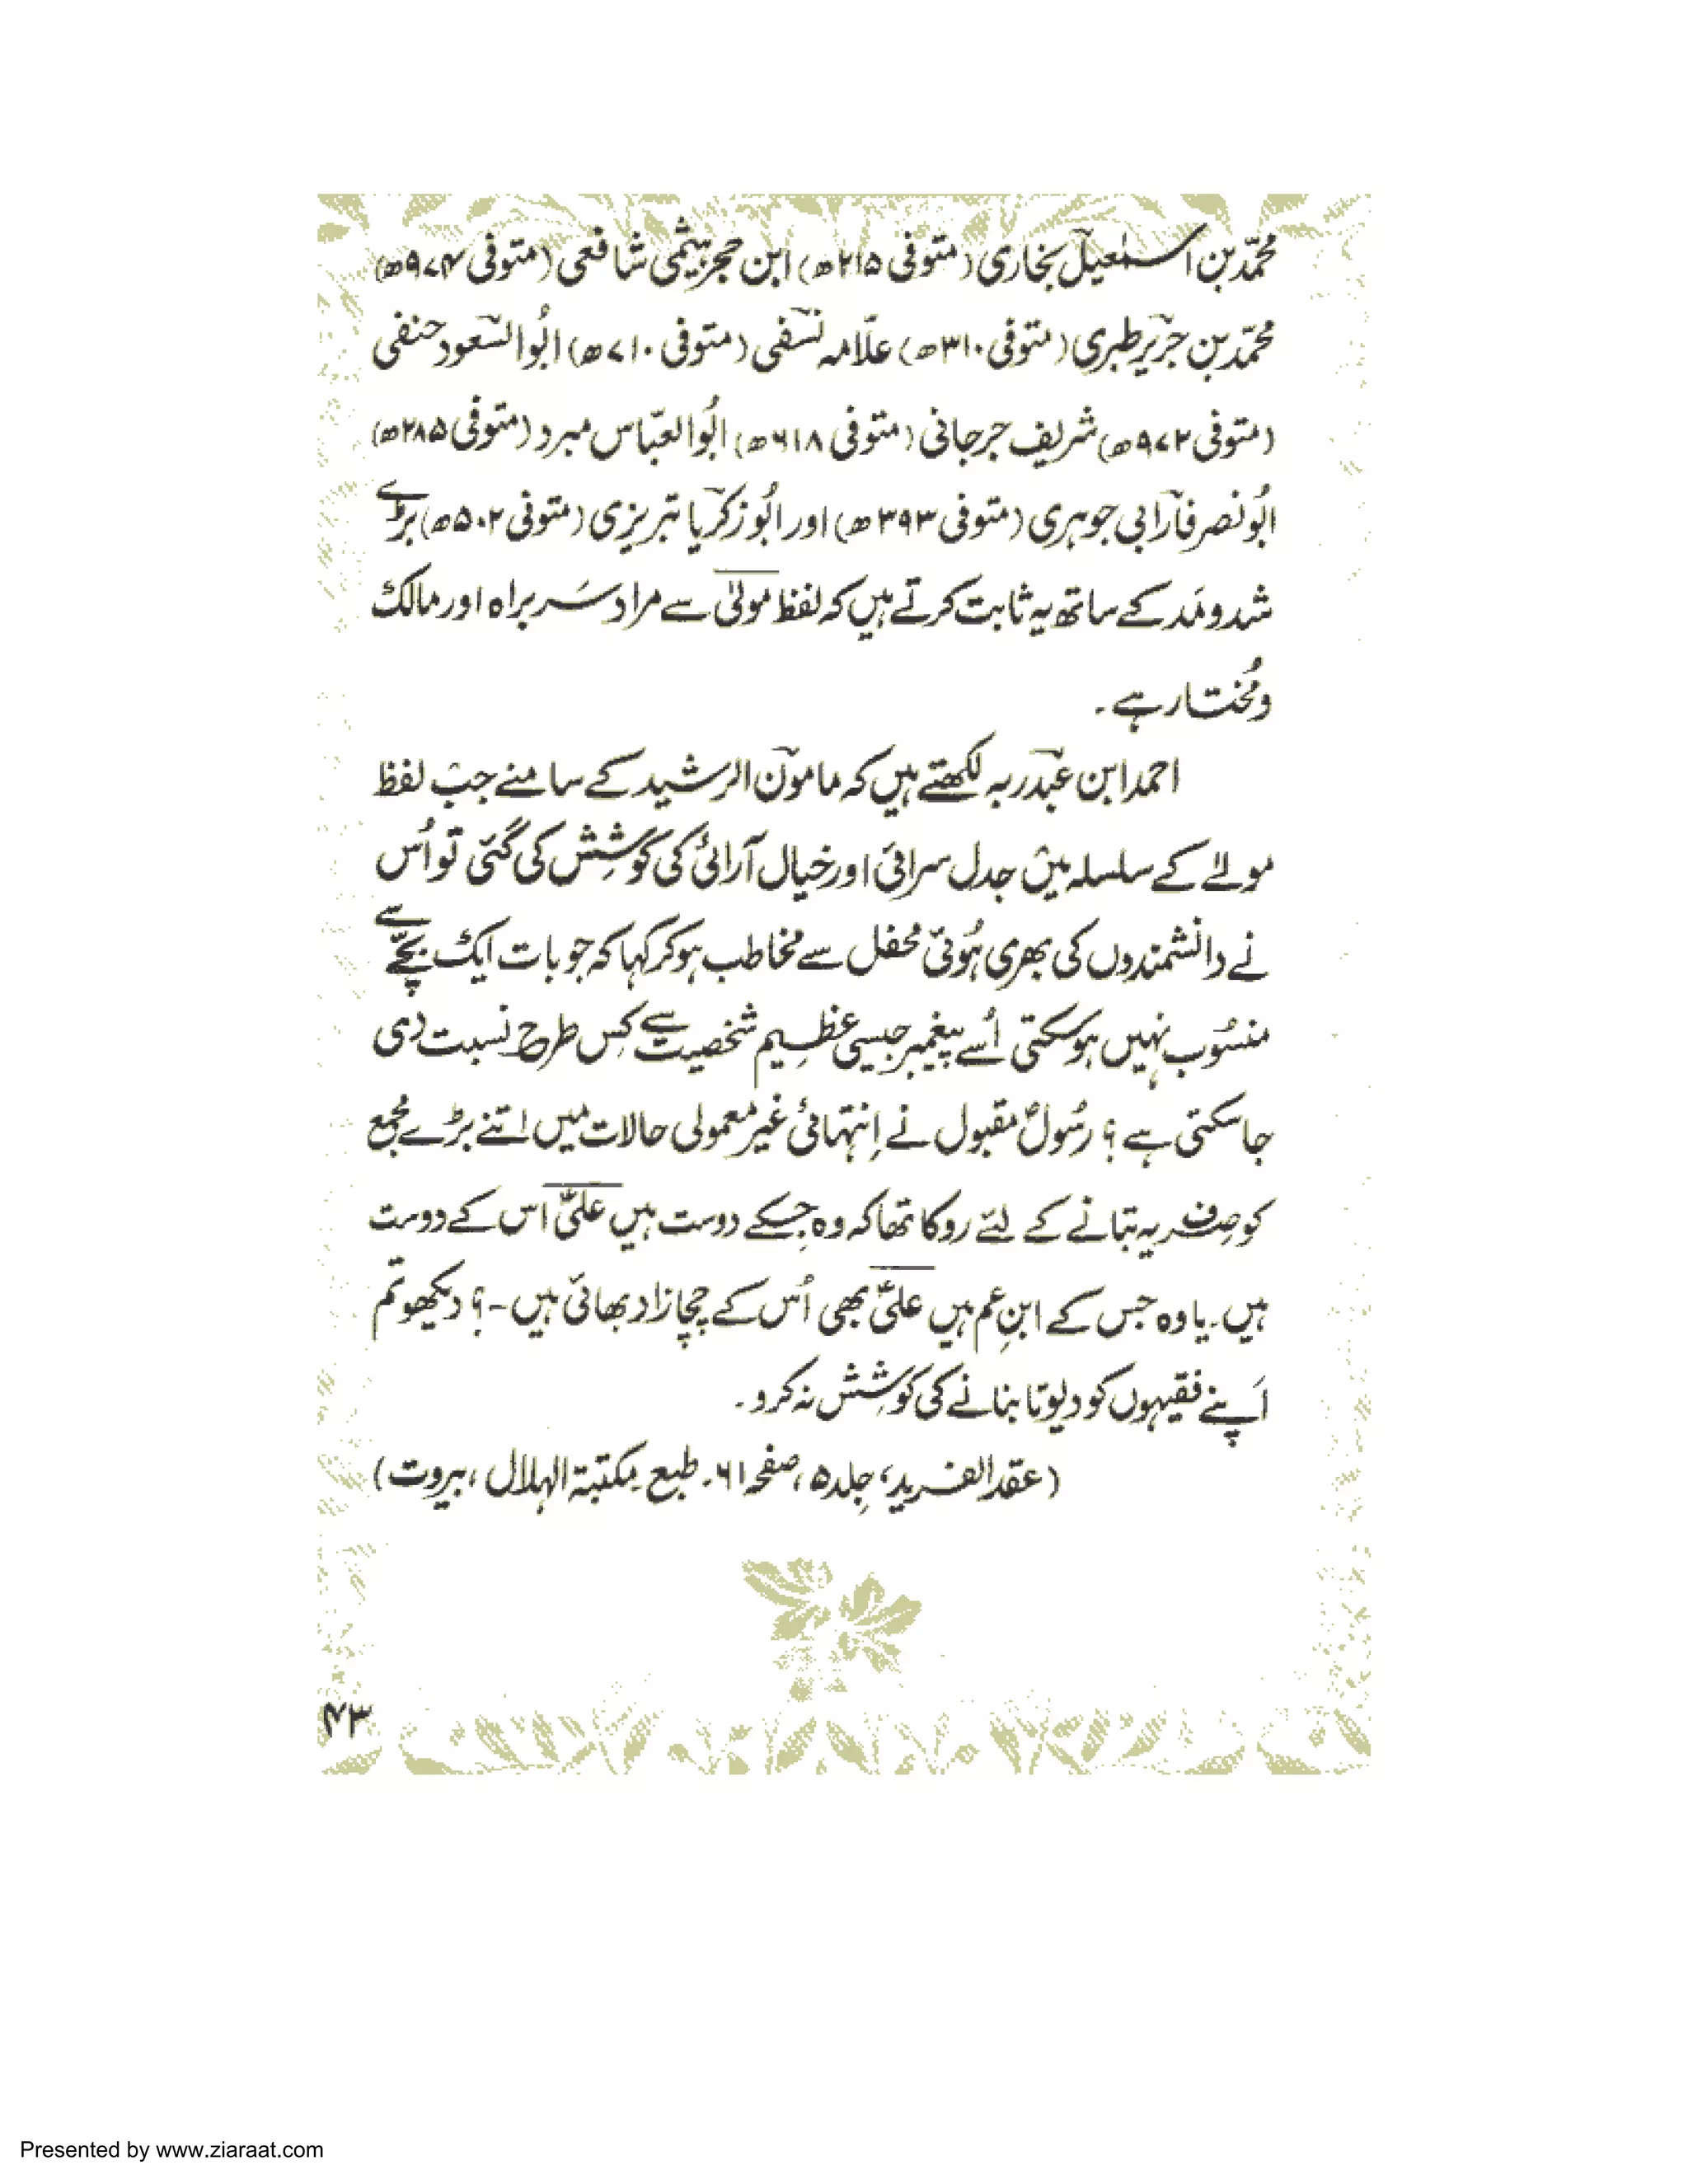 محمّد بن اسمٰعیل بخاری (متوفی ۲۱۵ھ) ابن حجر ہیثمی شافعی (متوفی ۹۷۴ھ)
محمّد بن جریر طبری (متوفی ۳۱۰ھ) علّامہ نسفی (متوفی ۷۱۰ھ) ابُو السعود حنفی
(متوفی ۹۷۲ھ) شریف جرجانی (متوفی ۶۱۸ھ) ابُو العبّاس مبرد (متوفی ۲۸۵ھ)
ابُو نصر فارابی جوہری (متوفی ۳۹۳ھ) اور ابُو زکریا تبریزی (متوفی ۵۰۲ھ) بڑے
شد و مَد کے ساتھ یہ ثابت کرتے ہیں کہ لفظ مولیٰ سے مراد سَربراہ اور مالک
ومُختار ہے۔
احمد ابن عبد ربہ لکھتے ہیں کہ مامون الرشید کے سامنے جب لفظ
مولےٰ کے سلسلہ میں جدل سرائی اور خیال آرائی کی کوشِش کی گئی تو اُس
نے دانشمندوں کی بھری ہُوئی محفل سے مخاطب ہو کر کہا کہ جو بات ایک بچّے سے
منسُوب نہیں ہو سکتی اُسے پیغمبر جیسی عظیم شخصیت سے کِس طرح نسبت دی
جا سکتی ہے؟ رسُولؐ مقبول نے اِنتہائی غیر معمولی حالات میں اتنے بڑے مجمع
کو صِرف یہ بتانے کے لئے روکا تھا کہ وہ جِسکے دوست ہیں علیؑ اس کے دوست
ہیں۔ یا وہ جس کے ابنِ عم ہیں علیؑ بھی اُس کے چچازاد بھائی ہیں۔؟ دیکھو تم
اَپنے فقیہوں کو دیوتا بنانے کی کوشِش نہ کرو۔
(عقد الفرید، جِلد ۵، صفحہ ۶۱۔ طبع مکتبۃ الہلال، بیروت)
۴۳
Presented by www.ziaraat.com